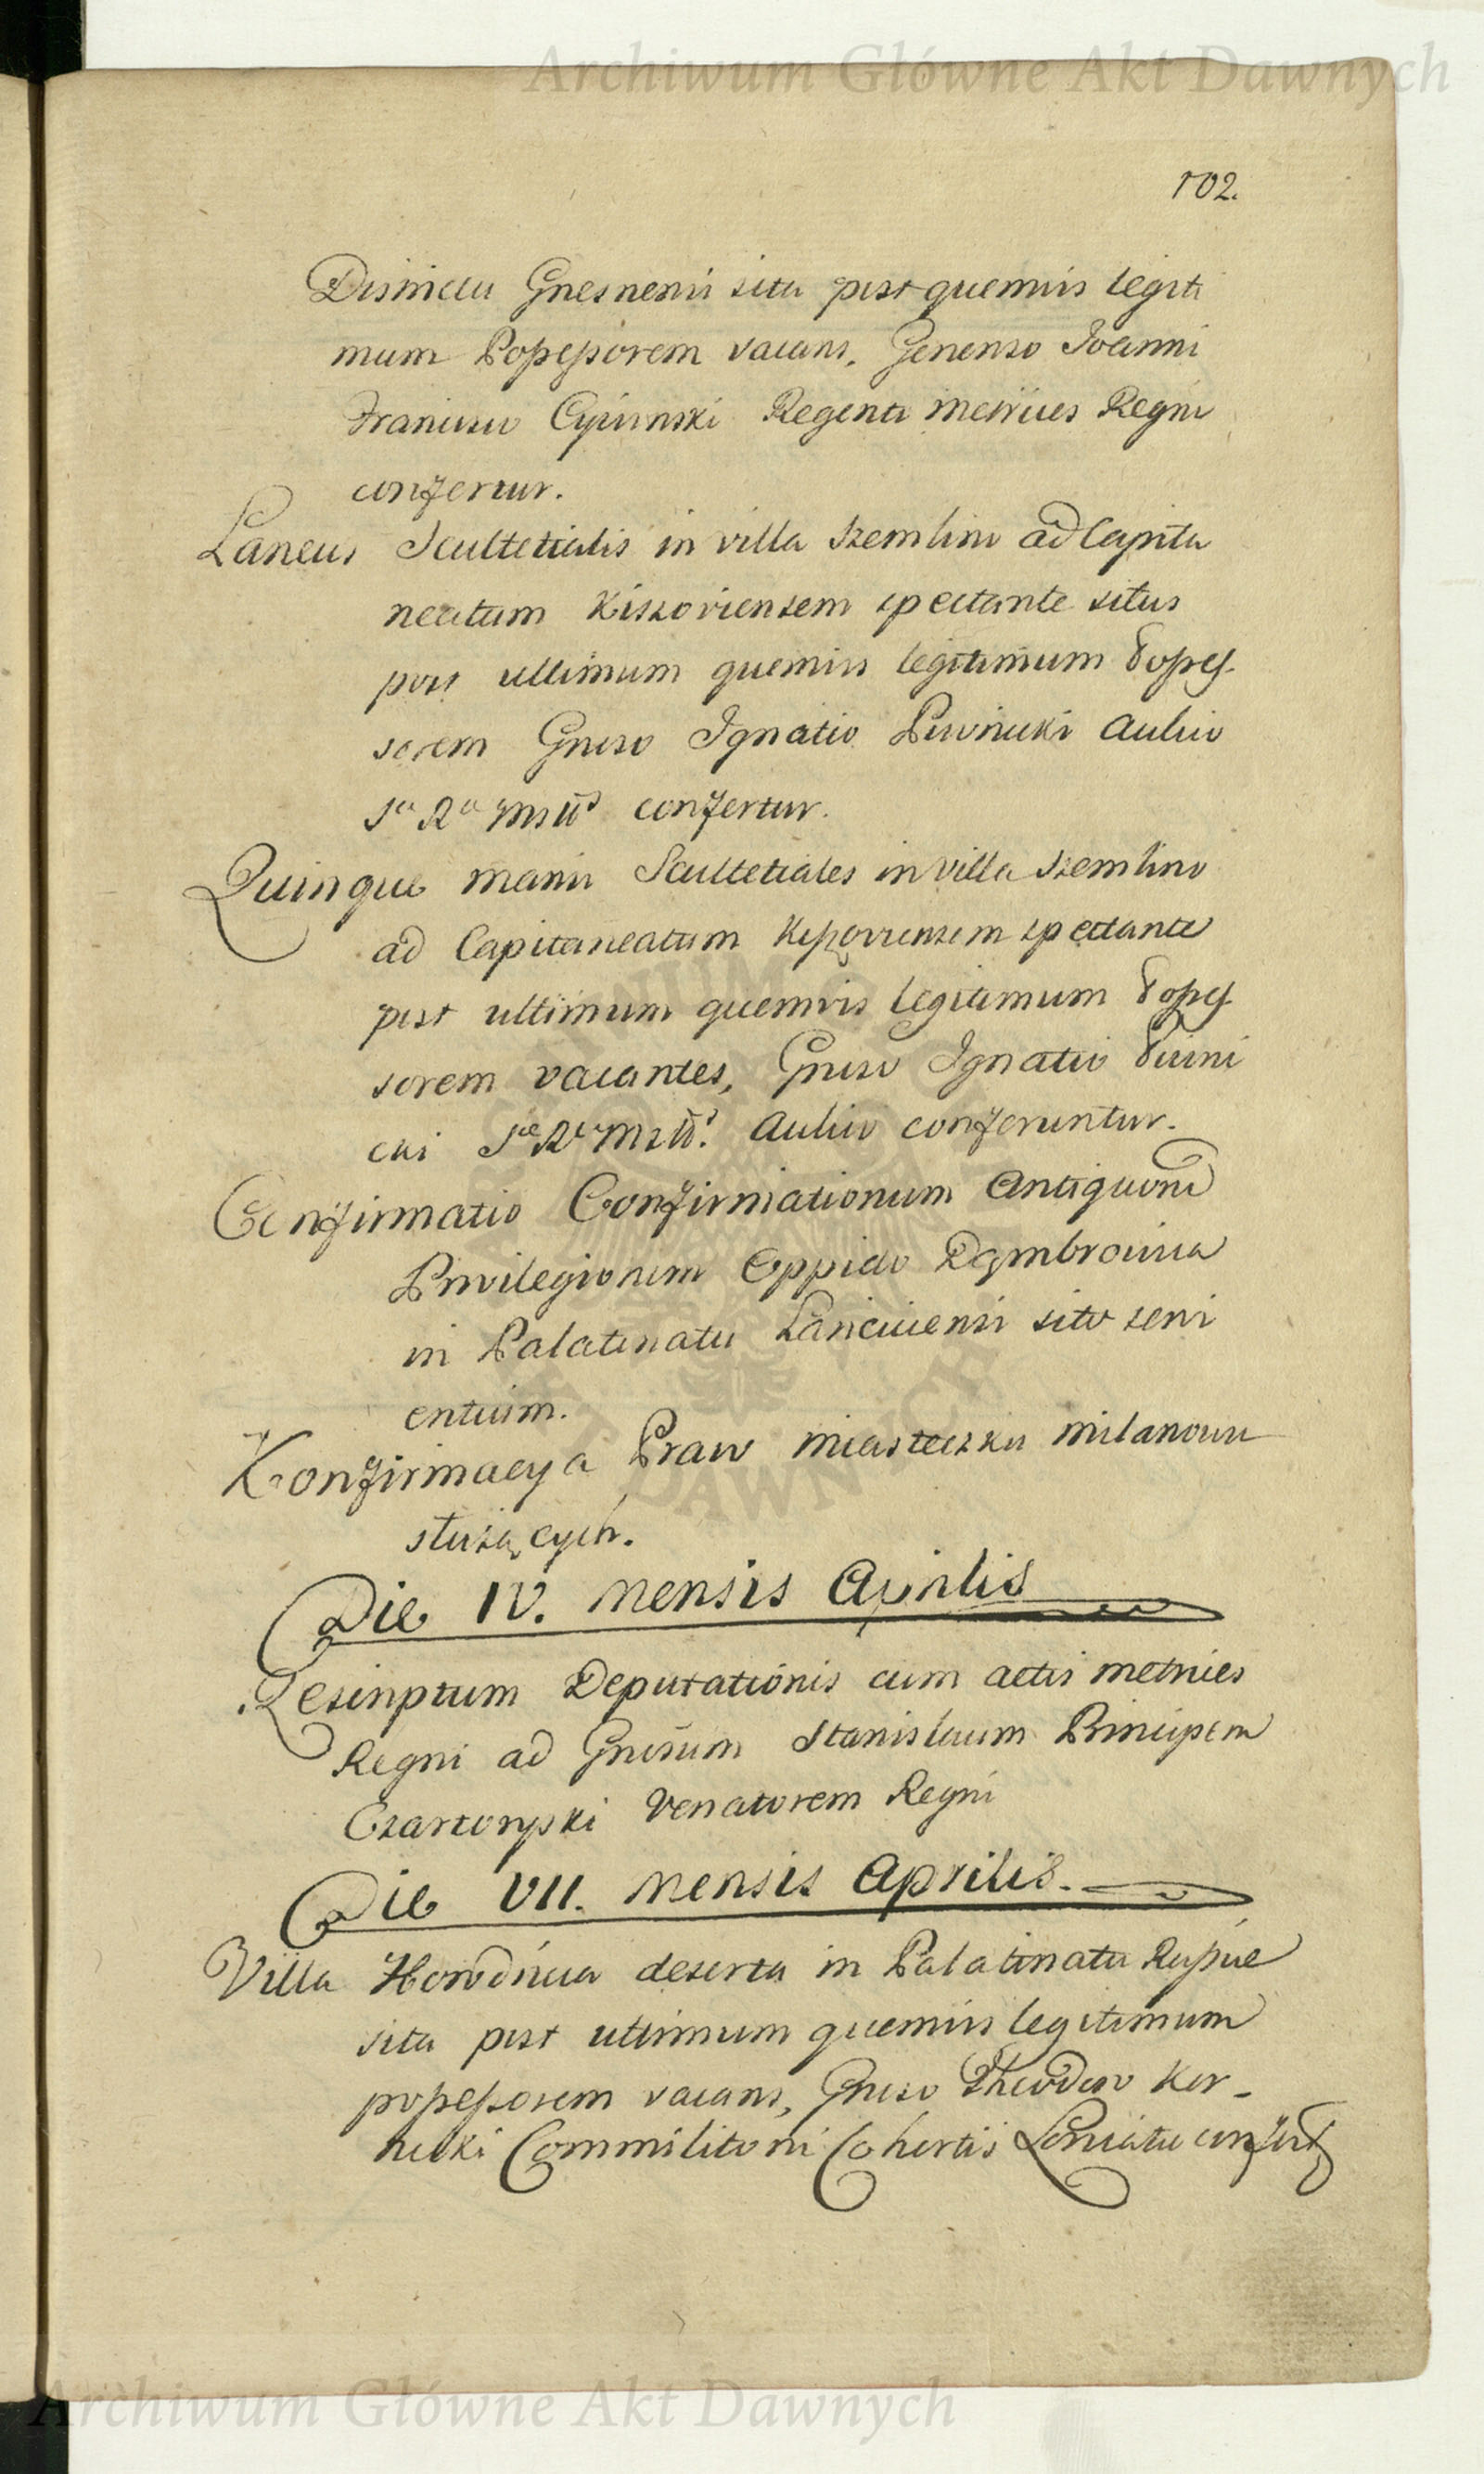 Archiwum Główne Akt Dawnych
102.
Districtu Gnesnensi sita post quemvis legiti
mum Possessorem vacans. Generoso Ioanni
Francisco Cyrinski Regenti Metrices Regni
confertur.
Laneus Scultetialis in villa Szemlino ad Capita
neatum Kiszoviensem spectante situs
post ultimum quemvis legitimum Posses-
sorem Gnroso Ignatio Piwnicki Aulico
Sa Ra Mttis confertur.
Quinque mansi Scultetiales in villa Szemlino
ad Capitaneatum Kiszoviensem spectante
post ultimum quemvis legitimum Posses-
sorem vacantes, Gnroso Ignatio Piwni
cki Sae Rae Mttis. Aulico conferuntur.
Confirmatio Confirmationum Antiquorum
Privilegiorum Oppido Dąmbrowica
in Palatinatu Lanciciensi sito servi
entium.
Konfirmacya Praw Miasteczku Milanowu
służących.
Die IV. Mensis Aprilis
Rescriptum Deputationis cum actis metrices
Regni ad Gnrosum Stanislaum Principem
Czartoryski Venatorem Regni
Die VII. Mensis Aprilis.
Villa deserta in Palatinatu Russiae
sita post ultimum quemvis legitimum
possessorem vacans, Gnroso Theodoro Ker-
nicki Commilitoni Cohortis Loricatae confert
Archiwum Główne Akt Dawnych